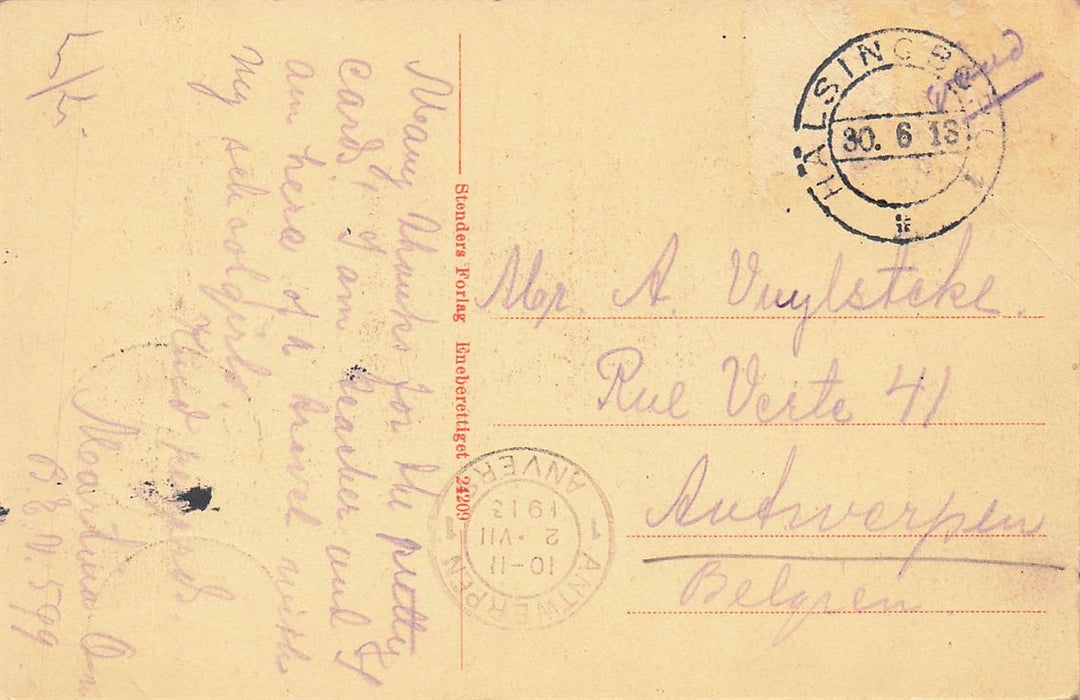 Many thanks for the pretty
card, I am teacher and I
am here of a travel with
my schoolgirls.
Kind regards.
Martina
B.E.N. 599.
Stenders Forlag Eneberettiget 24209
HÄLSINGBORG 1
30. 6 13
Mr. A. Vuylsteke.
Rue Verte 41
Antwerpen
Belgien
ANTWERPEN
10-11
2 · VII
1913
ANVERS